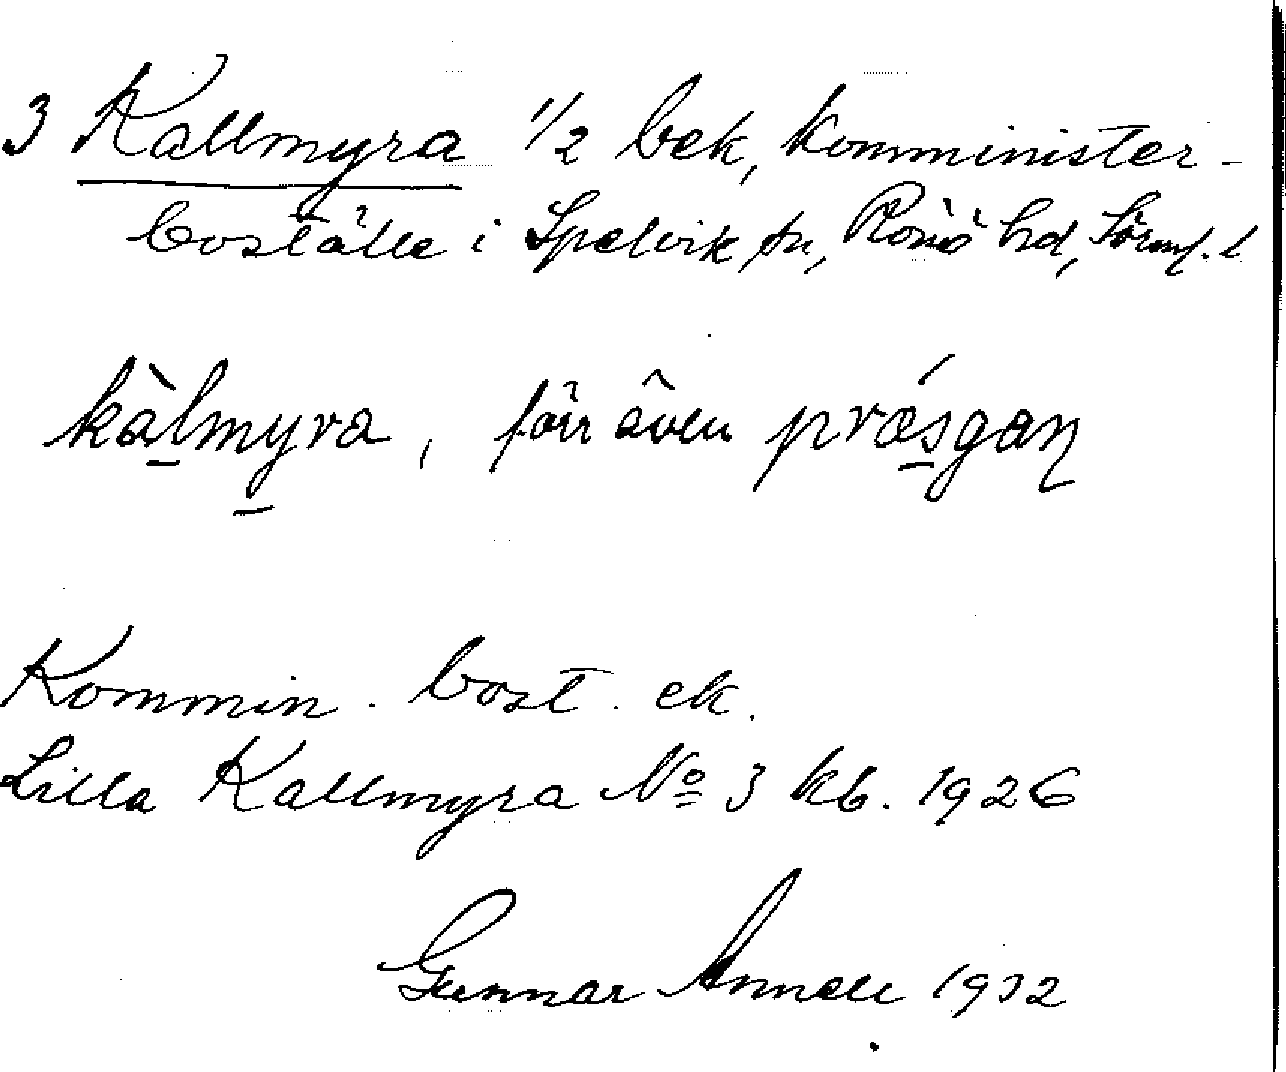 3 Kallmyra 1/2 bek, komminister-
boställe i Spelvik sn, Rönö hd, Sörml. l
kàlmyra, förr även prǽsgaɳ
Kommin. bost. ek.
Lilla Kallmyra No 3 kb. 1926
Gunnar Annell 1932